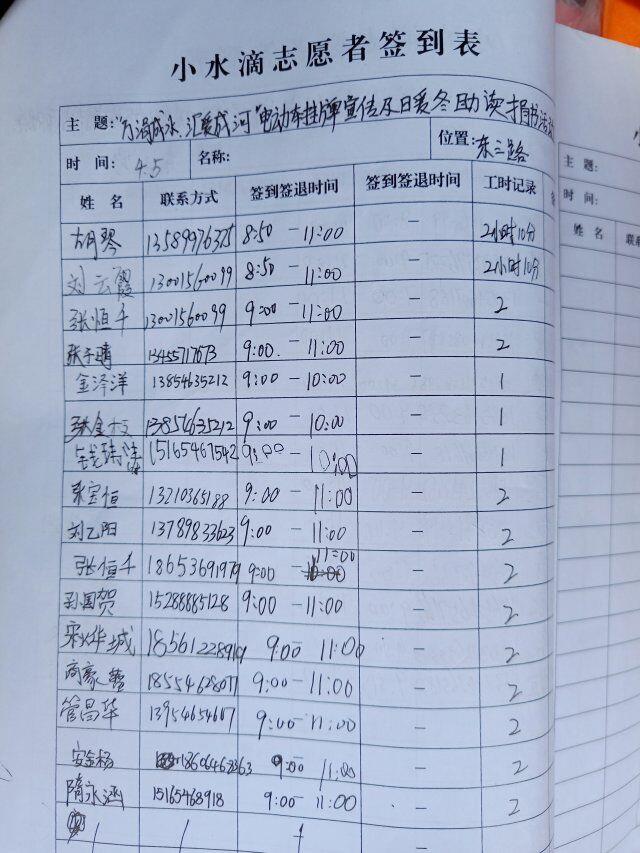 小水滴志愿者签到表
主 题:"万涓成水、汇爱成河"电动车挂牌宣传及日暖冬助读捐书活动
时 间: 4.5 名称: 位置: 东三路
姓 名 联系方式 签到签退时间 签到签退时间 工时记录
胡琴 13589976375 8:50 - 11:00 - 2小时10分
刘云霞 13001560099 8:50 - 11:00 - 2小时10分
张恒千 13001560099 9:00 - 11:00 - 2
张子晴 13455717673 9:00. - 11:00 - 2
金泽洋 13854635212 9:00 - 10:00 - 1
13854635212 9:00 - 10:00 - 1
15165467542 9:00 - 10:00 - 1
张宝恒 13210365188 9:00 - 11:00 - 2
刘乙阳 13789833623 9:00 - 11:00 - 2
张恒千 18653691979 9:00 - 11:00 - 2
孙国贺 15288885128 9:00 - 11:00 - 2
宋烨城 18561228919 9:00 11:00 - 2
9:00 - 11:00 - 2
管昌华 13954654607 9:00 - 11:00 - 2
9:00 11:00 - 2
隋永涵 15165468918 9:00 - 11:00 - 2
主 题:
时 间:
姓 名 联